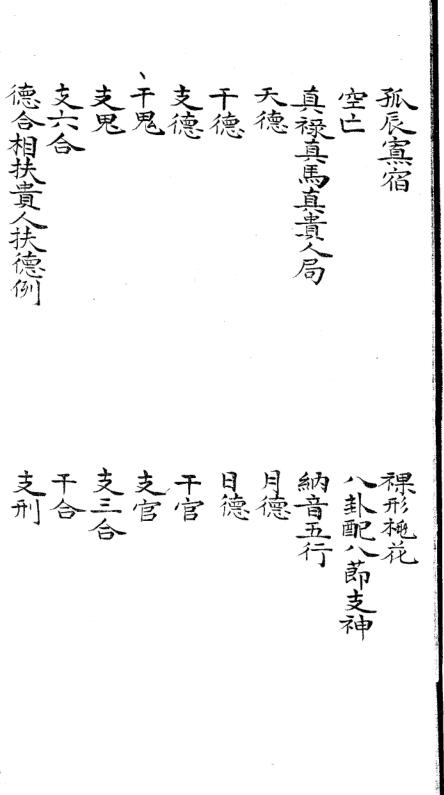 孤辰寡宿
裸形桃花
空亡
八卦配八節支神
真祿真馬真貴人局
納音五行
天德
月德
干德
日德
支德
干官
干鬼
支官
支鬼
支三合
支六合
干合
德合相扶貴人扶德例
支刑